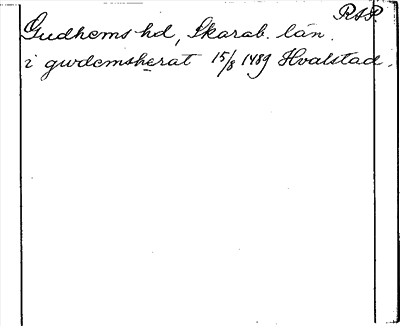 RAP.
Gudhems hd, Skarab. län.
i gwdemsherat 15/8 1489 Hvalstad.